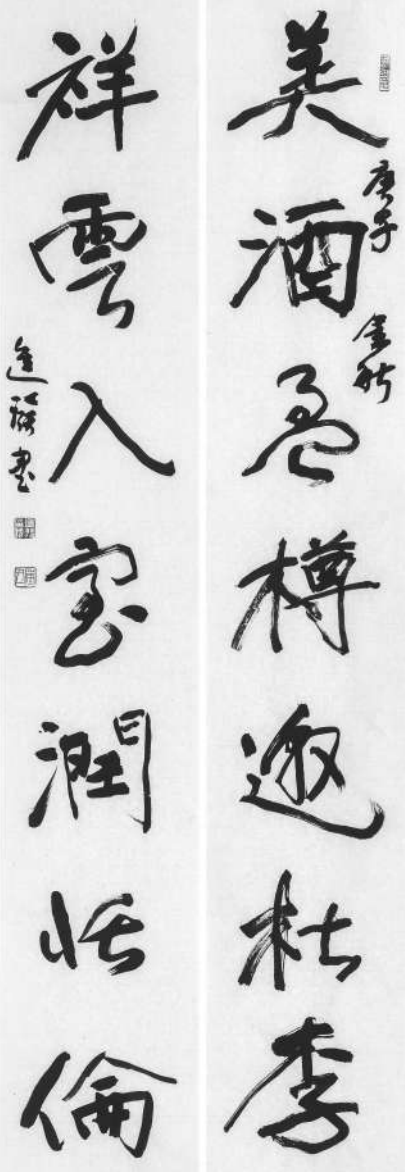 美酒盈樽邀杜李
庚子 金秋
祥雲入室潤恬倫
進 書